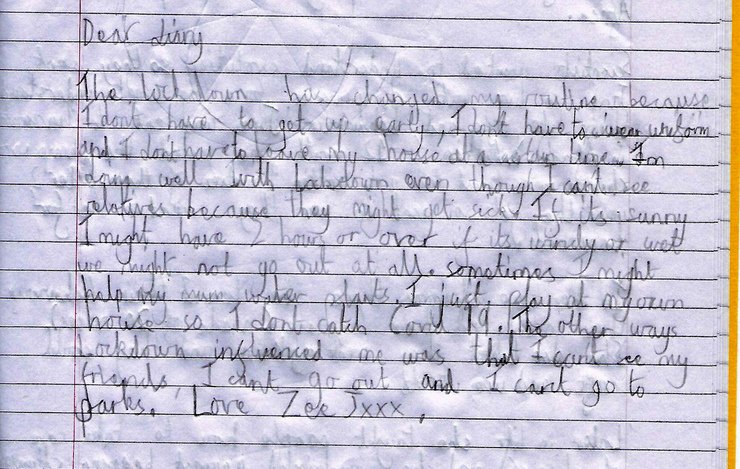 Dear diary
The lockdown has changed my routine because
I dont have to get up early, I dont have to wear uniform
and I dont have to leave my house at a certain time. Im
doing well with lockdown even though I cant see
relatives because they might get sick. If its sunny
I might have 2 hours or over if its windy or wet
we might not go out at all. sometimes I might
help my mum water plants. I just play at my own
house so I dont catch Covid 19. The other ways
Lockdown influenced me was that I cant see my
friends, I cant go out and I cant go to
parks. Love Zoe Jxxx.